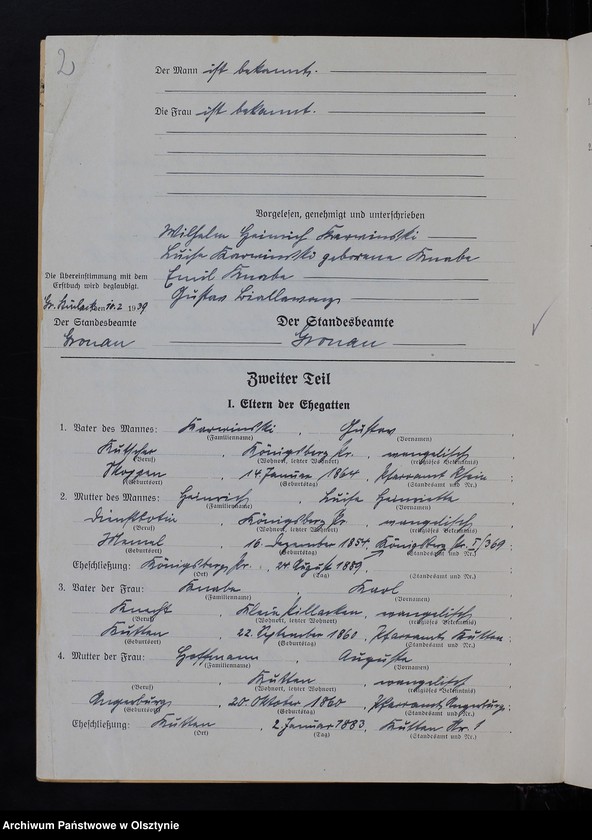 2
Der Mann ist bekannt.
Die Frau ist bekannt.
Vorgelesen, genehmigt und unterschrieben
Wilhelm Heinrich Karwinski
Luise Karwinski geborene Knabe
Emil Knabe
Gustav
Die Übereinstimmung mit dem
Erstbuch wird beglaubigt.
Gr. den 10.2 1939
Der Standesbeamte
Der Standesbeamte
Gronau
Gronau
Zweiter Teil
I. Eltern der Ehegatten
1. Vater des Mannes: Karwinski, Gustav
(Familienname) (Vornamen)
Kutscher, Königsberg Pr., evangelisch
(Beruf) (Wohnort, letzter Wohnort) (religiöses Bekenntnis)
14. Januar 1864, Pfarramt Rhein
(Geburtsort) (Geburtstag) (Standesamt und Nr.)
2. Mutter des Mannes: Heinrich, Luise Henriette
(Familienname) (Vornamen)
Dienstbotin, Königsberg Pr., evangelisch
(Beruf) (Wohnort, letzter Wohnort) (religiöses Bekenntnis)
Memel, 16. Dezember 1854, Königsberg Pr. I/369
(Geburtsort) (Geburtstag) (Standesamt und Nr.)
Eheschließung: Königsberg Pr., 24. August 1889,
(Ort) (Tag) (Standesamt und Nr.)
3. Vater der Frau: Knabe, Karl
(Familienname) (Vornamen)
Knecht, Klein Pillacken, evangelisch
(Beruf) (Wohnort, letzter Wohnort) (religiöses Bekenntnis)
Kutten, 22. September 1860, Pfarramt Kutten
(Geburtsort) (Geburtstag) (Standesamt und Nr.)
4. Mutter der Frau: Hoffmann, Auguste
(Familienname) (Vornamen)
Kutten, evangelisch
(Beruf) (Wohnort, letzter Wohnort) (religiöses Bekenntnis)
Angerburg, 20. Oktober 1860, Pfarramt Angerburg
(Geburtsort) (Geburtstag) (Standesamt und Nr.)
Eheschließung: Kutten, 2. Januar 1883, Kutten Nr. 1
(Ort) (Tag) (Standesamt und Nr.)
Archiwum Państwowe w Olsztynie